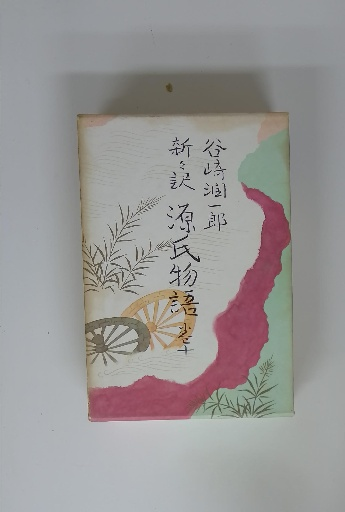 谷崎潤一郎
新々訳 源氏物語 巻十